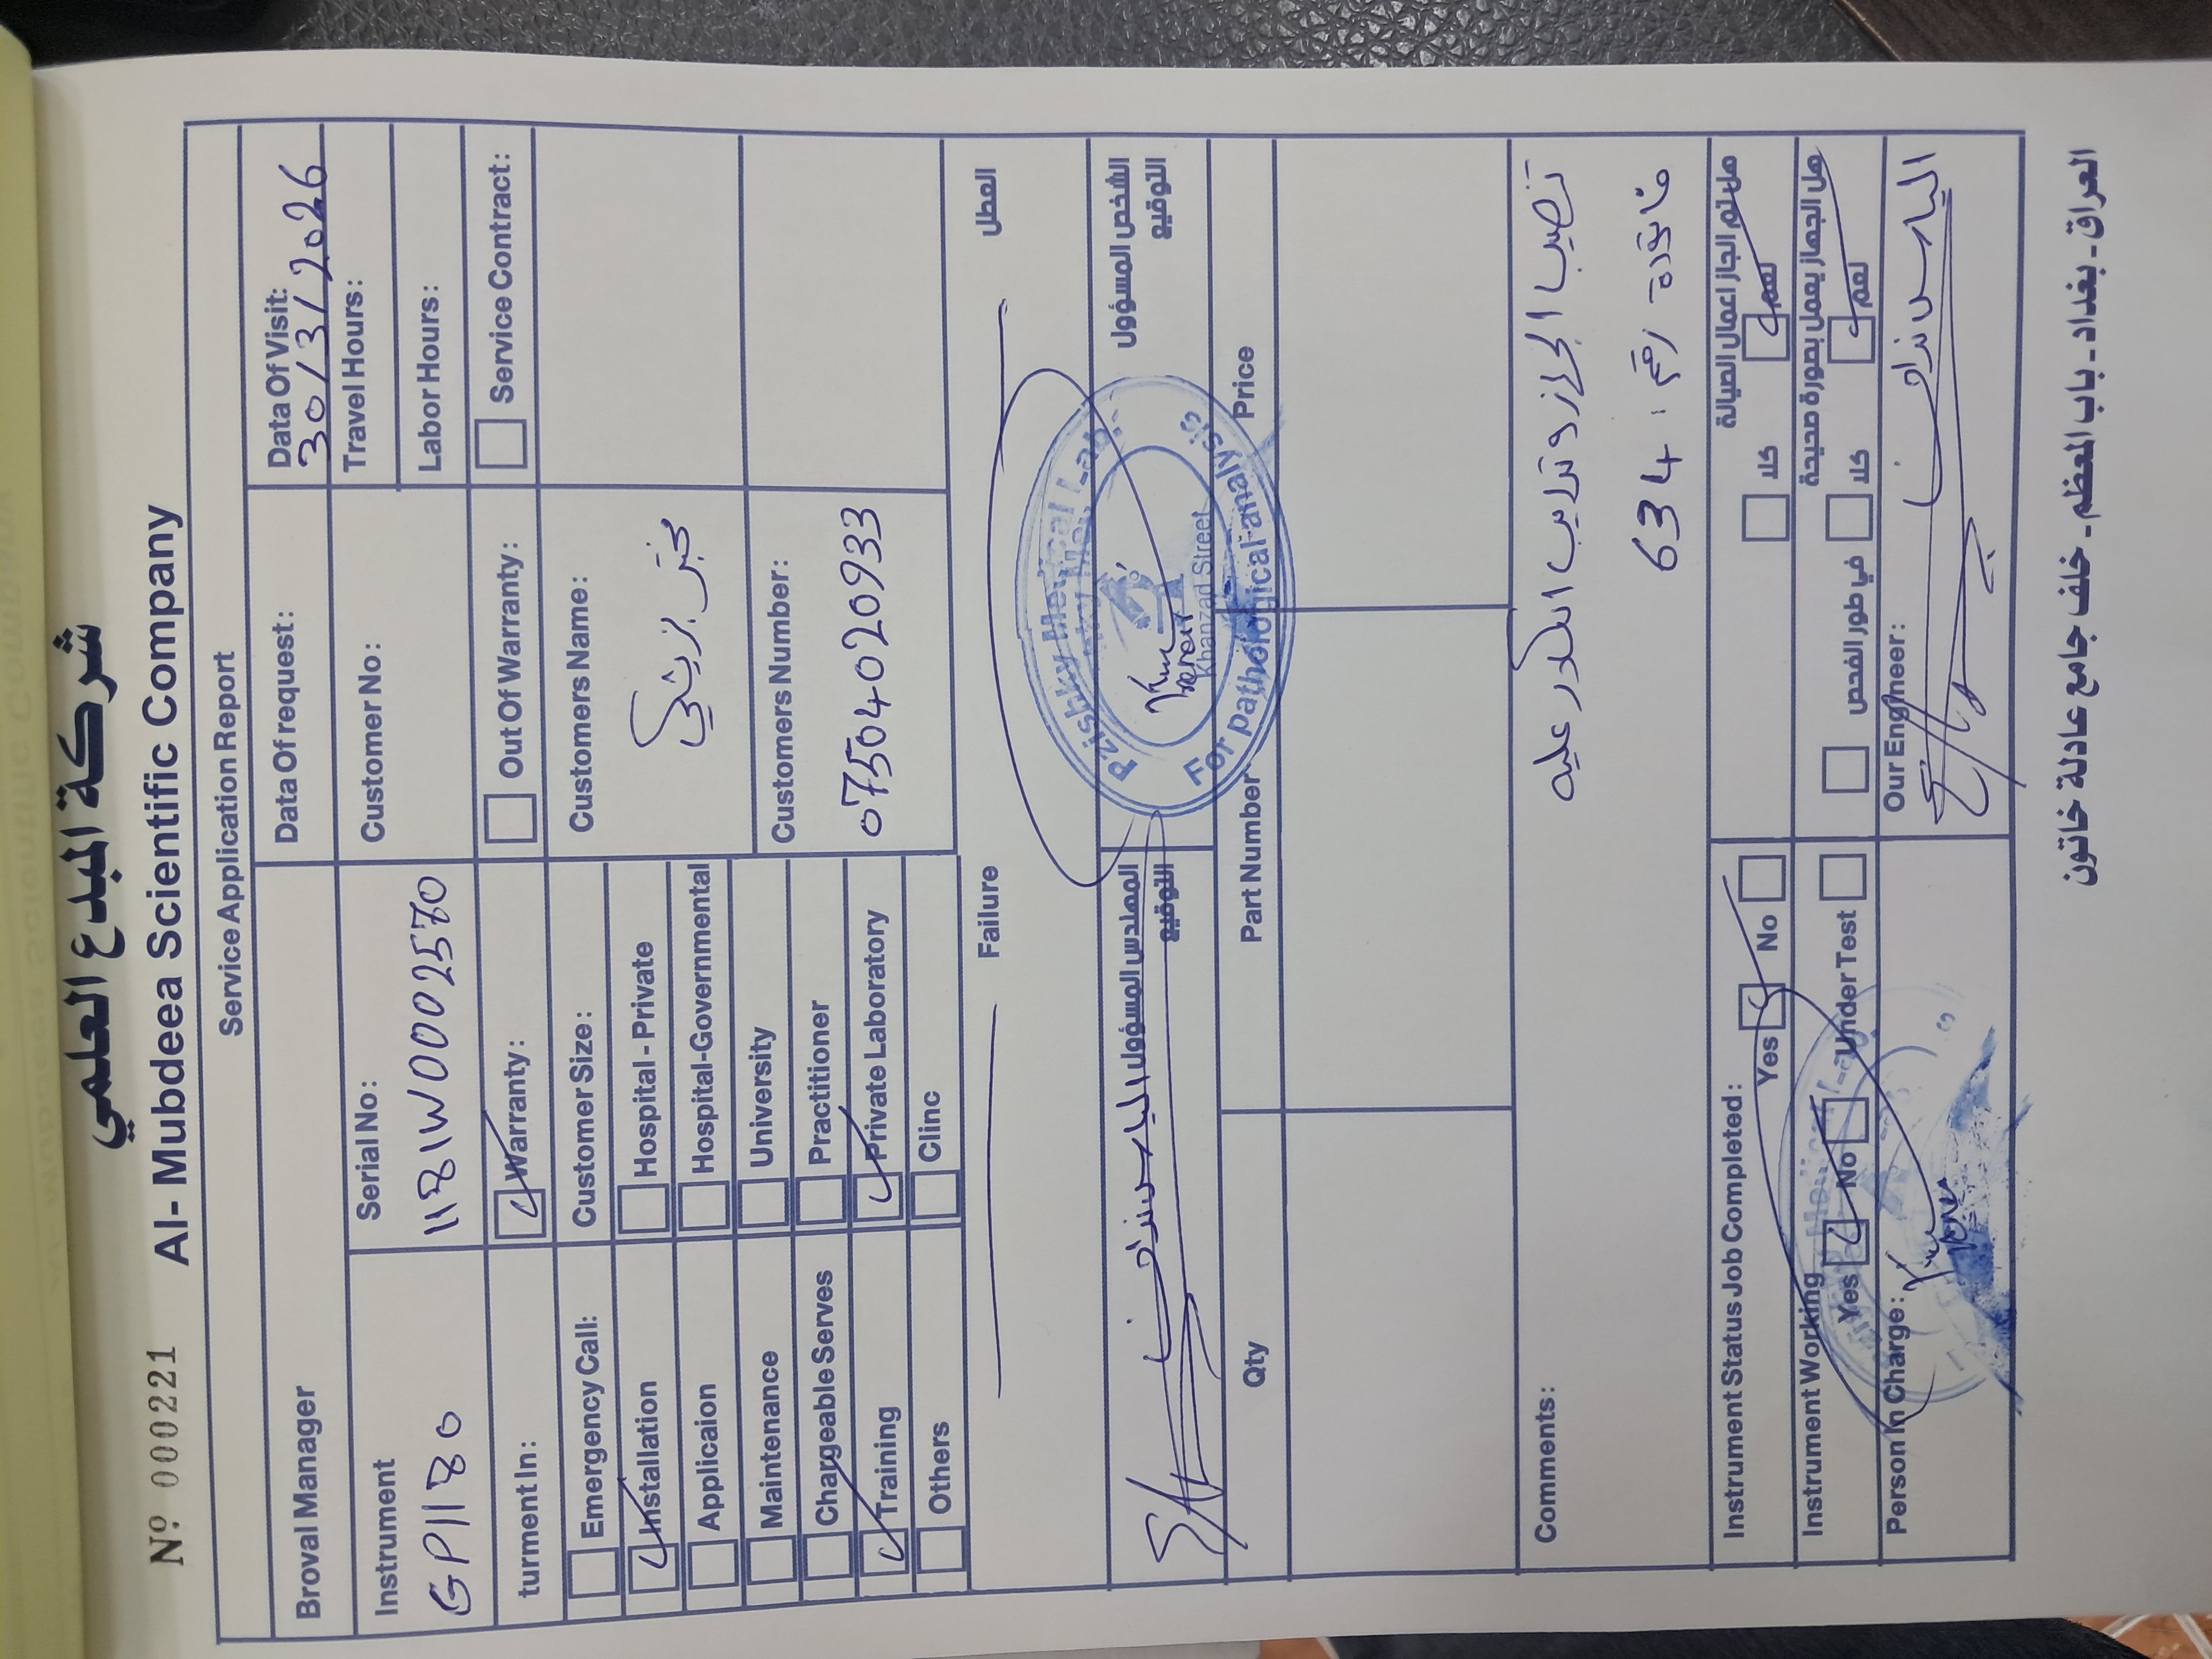 شركة المبدع العلمي
Nº 000221 Al- Mubdeea Scientific Company
Service Application Report
Broval Manager
Data Of request:
Data Of Visit:
30/3/2026
Instrument
GP1180
Serial No:
1181W0002570
Customer No:
Travel Hours:
Labor Hours:
turment In:
Warranty:
Out Of Warranty:
Service Contract:
Emergency Call:
Installation
Applicaion
Maintenance
Chargeable Serves
Training
Others
Customer Size:
Hospital - Private
Hospital-Governmental
University
Practitioner
Private Laboratory
Clinc
Customers Name:
مختبر
Customers Number:
07504020933
Failure
العطل
المهندس المسؤول
التوقيع
الشخص المسؤول
التوقيع
Pzishky Medical Lab.
Khanzad Street
For pathological analysis
Qty
Part Number
Price
Comments:
تنصيب الجهاز وتدريب الكادر عليه
فاتورة رقم : 634
Instrument Status Job Completed:
Yes
No
كلا
نعم
هل تم انجاز اعمال الصيانة
Instrument Working
Yes
No
Under Test
في طور الفحص
كلا
نعم
هل الجهاز يعمل بصورة صحيحة
Person In Charge:
Our Engineer:
العراق - بغداد - باب المعظم - خلف جامع عادلة خاتون